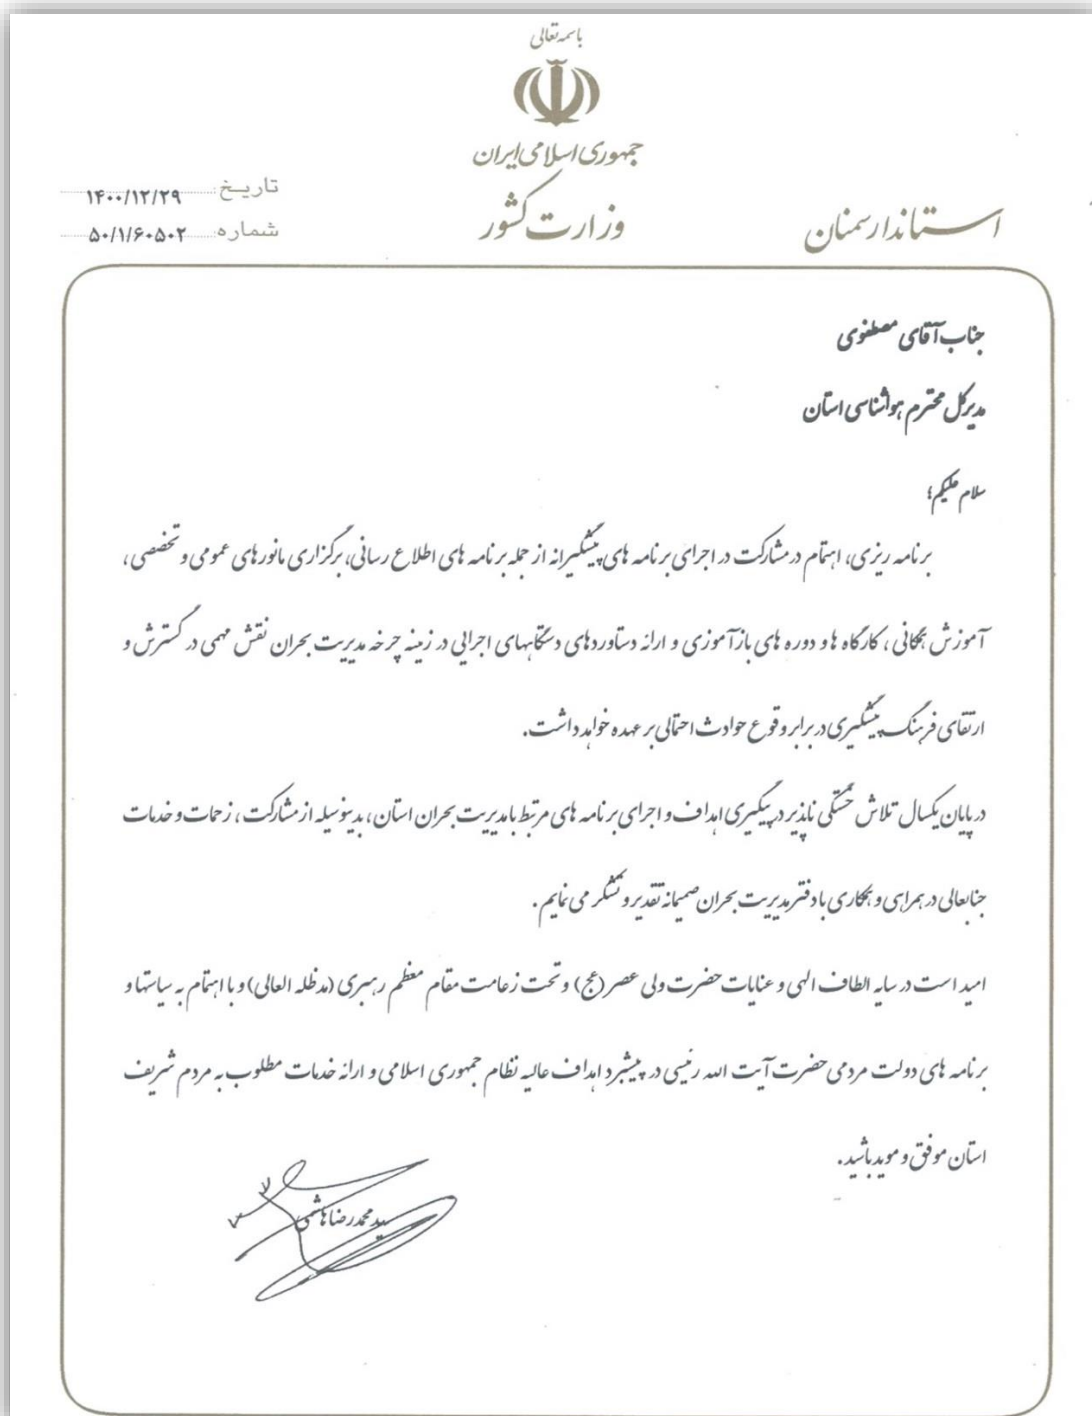 باسمه تعالی
جمهوری اسلامی ایران
وزارت کشور
استاندار سمنان
تاریخ: ۱۴۰۰/۱۲/۲۹
شماره: ۵۰/۱/۶۰۵۰۲
جناب آقای مصطفوی
مدیرکل محترم هواشناسی استان
سلام علیکم؛
برنامه ریزی، اهتمام در مشارکت در اجرای برنامه های پیشگیرانه از جمله برنامه های اطلاع رسانی، برگزاری مانورهای عمومی و تخصصی ،
آموزش همگانی ، کارگاه ها و دوره های بازآموزی و ارائه دستاوردهای دستگاههای اجرایی در زمینه چرخه مدیریت بحران نقش مهمی در گسترش و
ارتقای فرهنگ پیشگیری در برابر وقوع حوادث احتمالی بر عهده خواهد داشت.
در پایان یکسال تلاش خستگی ناپذیر در پیگیری اهداف و اجرای برنامه های مرتبط با مدیریت بحران استان، بدینوسیله از مشارکت ، زحمات و خدمات
جنابعالی در همراهی و همکاری با دفتر مدیریت بحران صمیمانه تقدیر و تشکر می نمایم.
امید است در سایه الطاف الهی و عنایات حضرت ولی عصر (عج) و تحت زعامت مقام معظم رهبری (مدظله العالی) و با اهتمام به سیاستها و
برنامه های دولت مردمی حضرت آیت الله رئیسی در پیشبرد اهداف عالیه نظام جمهوری اسلامی و ارائه خدمات مطلوب به مردم شریف
استان موفق و موید باشید.
سید محمدرضا هاشمی